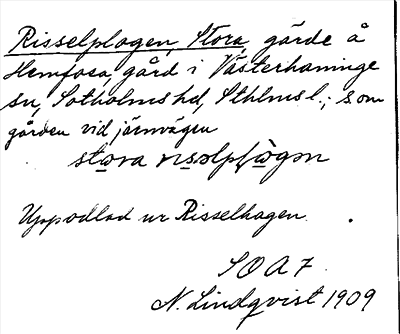 Risselplogen, Stora, gärde å
Hemfosa, gård i Västerhaninge
sn, Sotholms hd, Sthlms l.; som
gården vid järnvägen
stora risəlpɫωgən
Uppodlad ur Risselhagen.
S O A 7.
N. Lindqvist 1909